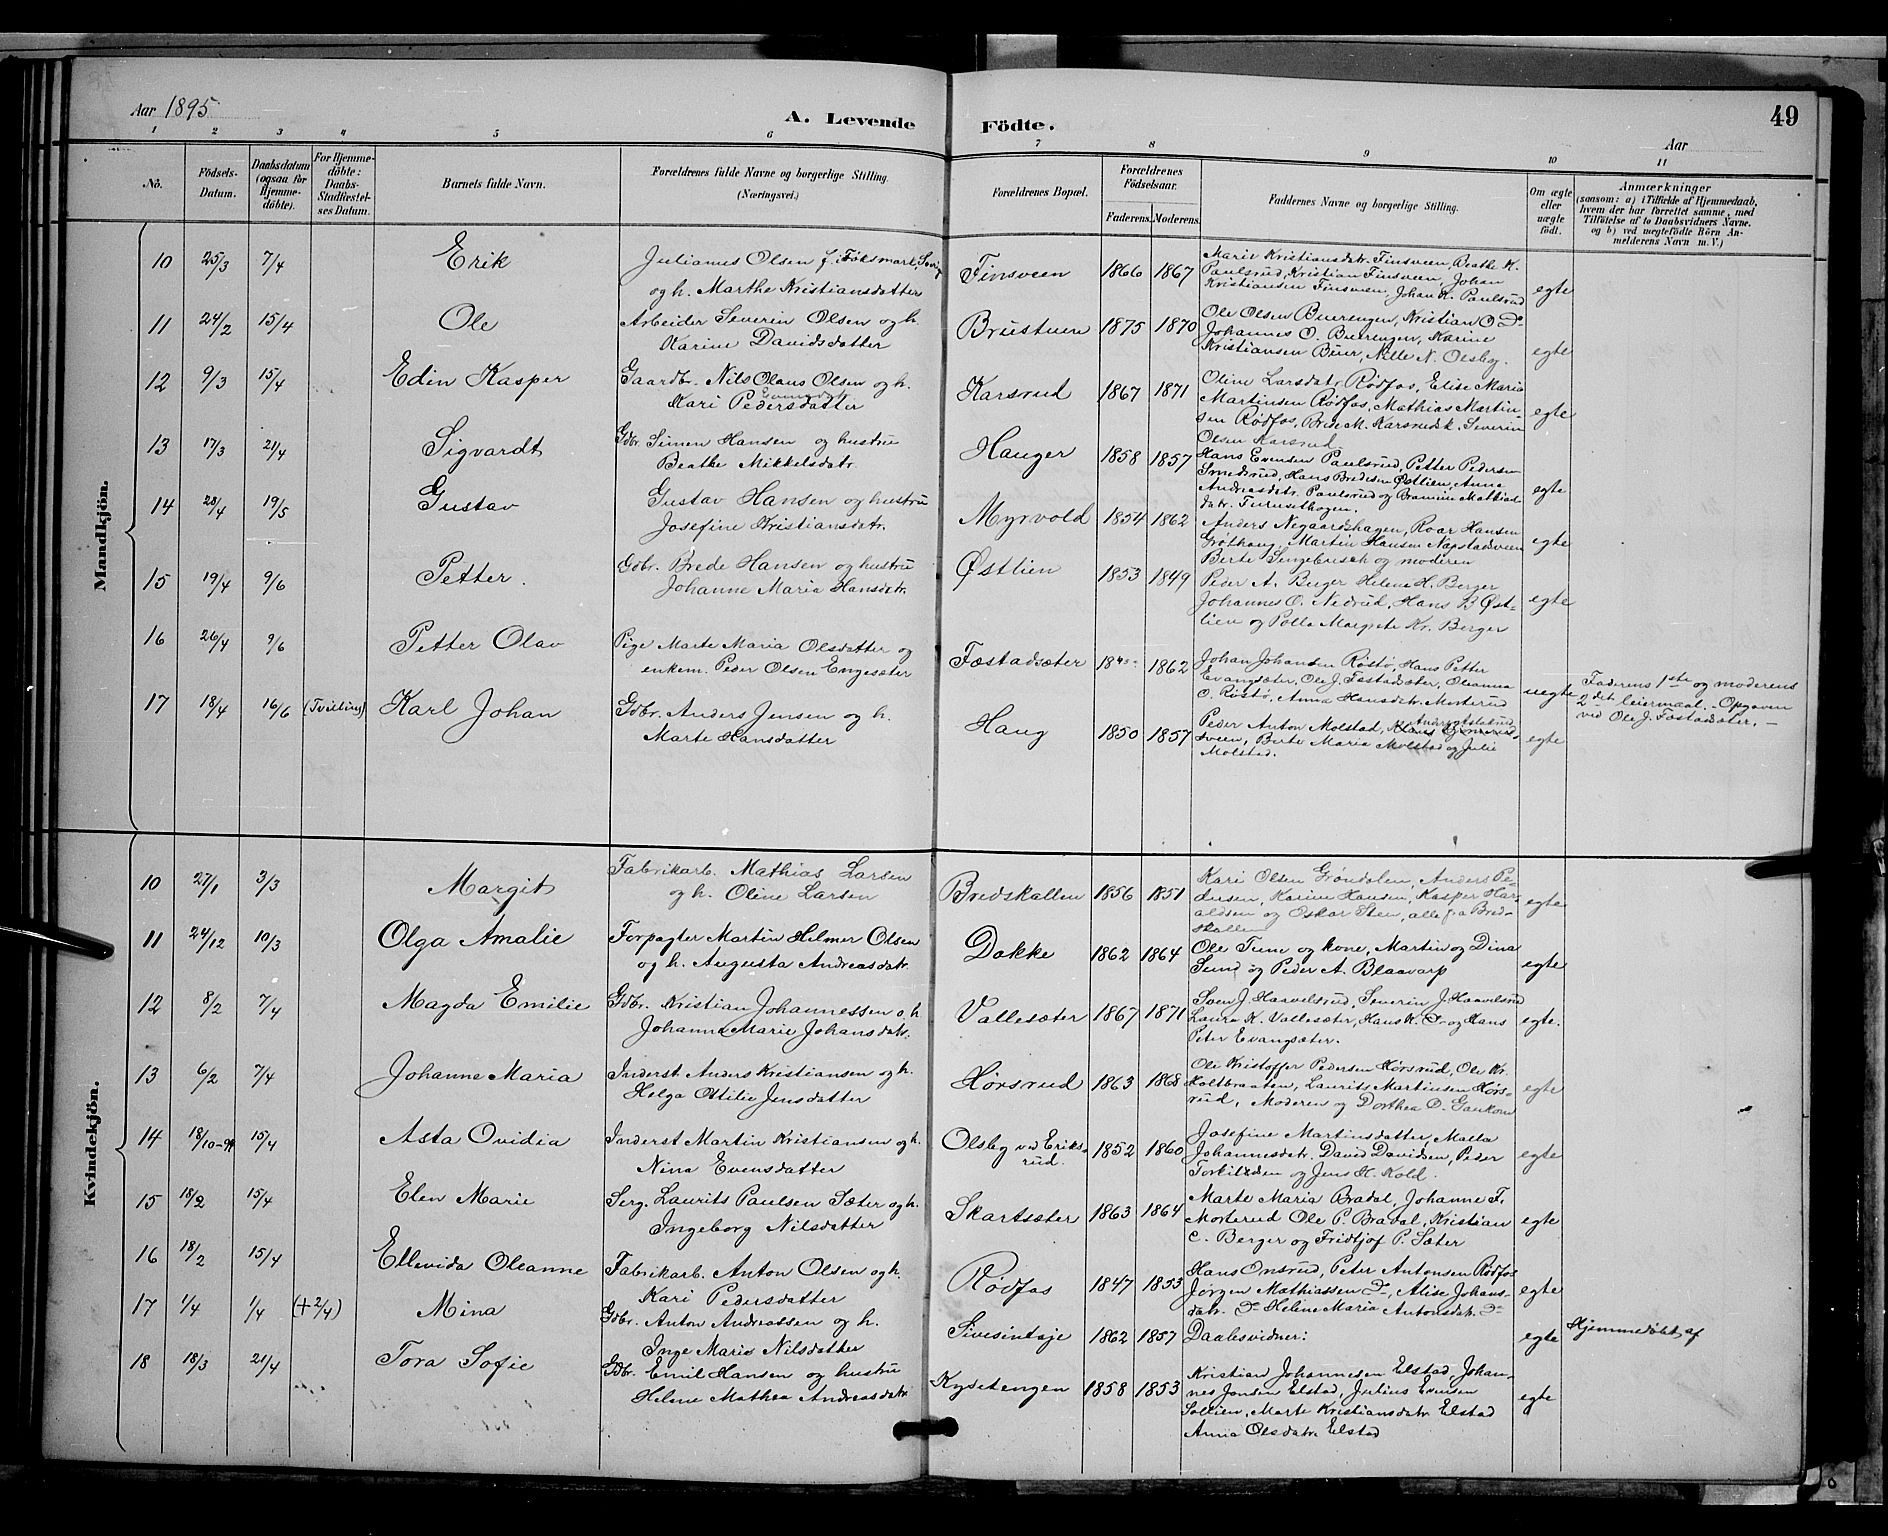 Aar 1895
A. Levende Födte.
49
Aar
1 2 3 4 5 6 7 8 9 10 11
No.
Födsels-Datum.
Daabsdatum (ogsaa for Hjemme-döbte).
For Hjemme-döbte: Daabs-Stadfæstel-ses Datum.
Barnets fulde Navn.
Forældrenes fulde Navne og borgerlige Stilling. (Næringsvei.)
Forældrenes Bopæl.
Forældrenes Födselsaar.
Faderens. Moderens.
Faddernes Navne og borgerlige Stilling.
Om ægte eller uægte födt.
Anmærkninger
(saasom: a) i Tilfælde af Hjemmedaab,
hvem der har forrettet samme, med
Tilföielse af to Daabsvidners Navne.
og b) ved uægtefödte Börn An-
melderens Navn m. V.)
Mandkjön.
10 25/3 7/4 Erik
Julianus Olsen f. i
og h. Marthe Kristiansdatter
Finsveen 1866 1867
Marie Kristiansdatr. Finsveen, Beathe K.
Paulsrud, Kristian Finsveen, Johan
Kristiansen Finsveen, Johan K. Paulsrud
egte
11 24/2 15/4 Ole
Arbeider Severin Olsen og h.
Karine Davidsdatter
Brustuen 1875 1870
Ole Olsen Buerengen, Kristian O. Do
Johannes O. Buerengen, Karine
Kristiansen Buer, Nille N. Olsby.
egte
12 9/3 15/4 Edin Kasper
Gaardbr. Nils Olaus Olsen og h.
Kari Pedersdatter
Karsrud 1867 1871
Oline Larsdatr. Rødfos, Elise Maria
Martinsen Rødfos, Mathias Martin-
sen Rødfos, Brede M. Karsrudsk. Severin
Olsen Karsrud.
egte
13 17/3 21/4 Sigvardt
Gdbr. Simen Hansen og hustru
Beathe Mikkelsdatr.
Hauger 1858 1857
Hans Evensen Paulsrud, Petter Pedersen
Smedsrud, Hans Bredesen Østlien, Anna
Andreasdatr. Paulsrud og
datr.
egte
14 28/4 19/5 Gustav
Gustav Hansen og hustru
Josefine Kristiansdatr.
Myrvold 1854 1862
Anders Negaardshagen, Roar Hansen
Grøthaug, Martin Hansen Napstadveen
Berte og moderen
egte
15 19/4 9/6 Petter.
Gdbr. Brede Hansen og hustru
Johanne Maria Hansdatr.
Østlien 1853 1849
Peder A. Berger Helene H. Berger
Johannes O. Nedrud, Hans B Øst-
lien og Polla Margrete Kr. Berger
egte
16 26/4 9/6 Petter Olav
Pige Marte Maria Olsdatter og
enkem. Peder Olsen Engesæter
Fæstadsæter 1862
Johan Johansen Røstø, Hans Petter
Evangsæter, Ole J. Fæstadsæter, Oleanna
O. Røstø, Anna Hansdatr. Morterud
uegte
Faderens 1ste og moderens
2det leiermaal. - Opgaven
ved Ole J. Fæstadsæter. -
17 18/4 16/6 (Tvilling) Karl Johan
Gdbr. Anders Jensen og h.
Marte Hansdatter
Haug 1850 1857
Peder Anton Molstad,
sveen, Berte Maria Molstad og Julie
Molstad.
egte
Kvindekjön.
10 27/1 3/3 Margit
Fabrikarb. Mathias Larsen
og h. Oline Larsen
Bredskallen 1856 1851
Kari Olsen Grøndalen, Anders Pe-
dersen, Karine Hansen, Kasper Har-
aldsen og Oskar Steen, alle fra Bred-
skallen
egte
11 24/12 10/3 Olga Amalie
Forpagter Martin Helmer Olsen
og h. Augusta Andreasdatr.
Dokke 1862 1864
Ole Sune og kone, Martin og Dina
Sund og Peder A. Blaavarp
egte
12 8/2 7/4 Magda Emilie
Gdbr. Kristian Johannessen o. h.
Johanne Marie Johansdatr.
Vallesæter 1867 1871
Sven J. Haavelsrud, Severin J. Haavelsrud
Laura K. Vallesæter, Hans K. Do og Hans
Peter Evangsæter.
egte.
13 6/2 7/4 Johanne Maria
Inderst. Anders Kristiansen og h.
Helga Ottilie Jensdatter
Hørsrud 1863 1868
Ole Kristoffer Pedersen Hørsrud, Ole Kr.
Holtbraaten, Laurits Martinsen Hørs-
rud, Moderen og Dorthea O.
egte
14 18/10-94 15/4 Asta Ovidia
Inderst Martin Kristiansen og h.
Nina Evensdatter
Olsby ved Eriks-
rud. 1852 1860
Josefine Martinsdatter, Malla
Johannesdatr. David Davidsen, Peder
Torkildsen og Jens H. Kold.
egte
15 18/2 15/4 Elen Marie
Serg. Laurits Paulsen Sæter og h.
Ingeborg Nilsdatter
Skartsæter 1863 1864
Marte Maria Bradal, Johanne F.
Morterud Ole P. Bradal, Kristian
C. Berger og Fridtjof P. Sæter
egte
16 18/2 15/4 Ellevida Oleanne
Fabrikarb. Anton Olsen og h.
Kari Pedersdatter
Rødfos 1847 1853
Hans Onsrud, Peter Antonsen Rødfos
Jørgen Mathiassen Do, Alise Johans-
datr. Do Helene Maria Antonsdatr. Do
egte
17 1/4 1/4 (+ 2/4) Mina
Gdbr. Anton Andreassen og h.
Inge Marie Nilsdatter
Sivesindsje 1862 1857
Daabsvidner:
egte
Hjemmedøbt af
18 18/3 21/4 Tora Sofie
Gdbr. Emil Hansen og hustru
Helene Mathea Andreasdatr
Kydstengen 1858 1853
Kristian Johannesen Elstad, Johan-
nes Jensen Elstad, Julius Evensen
Sollien, Marte Kristiansdatr. Elstad
Anna Olsdatr. Elstad
egte